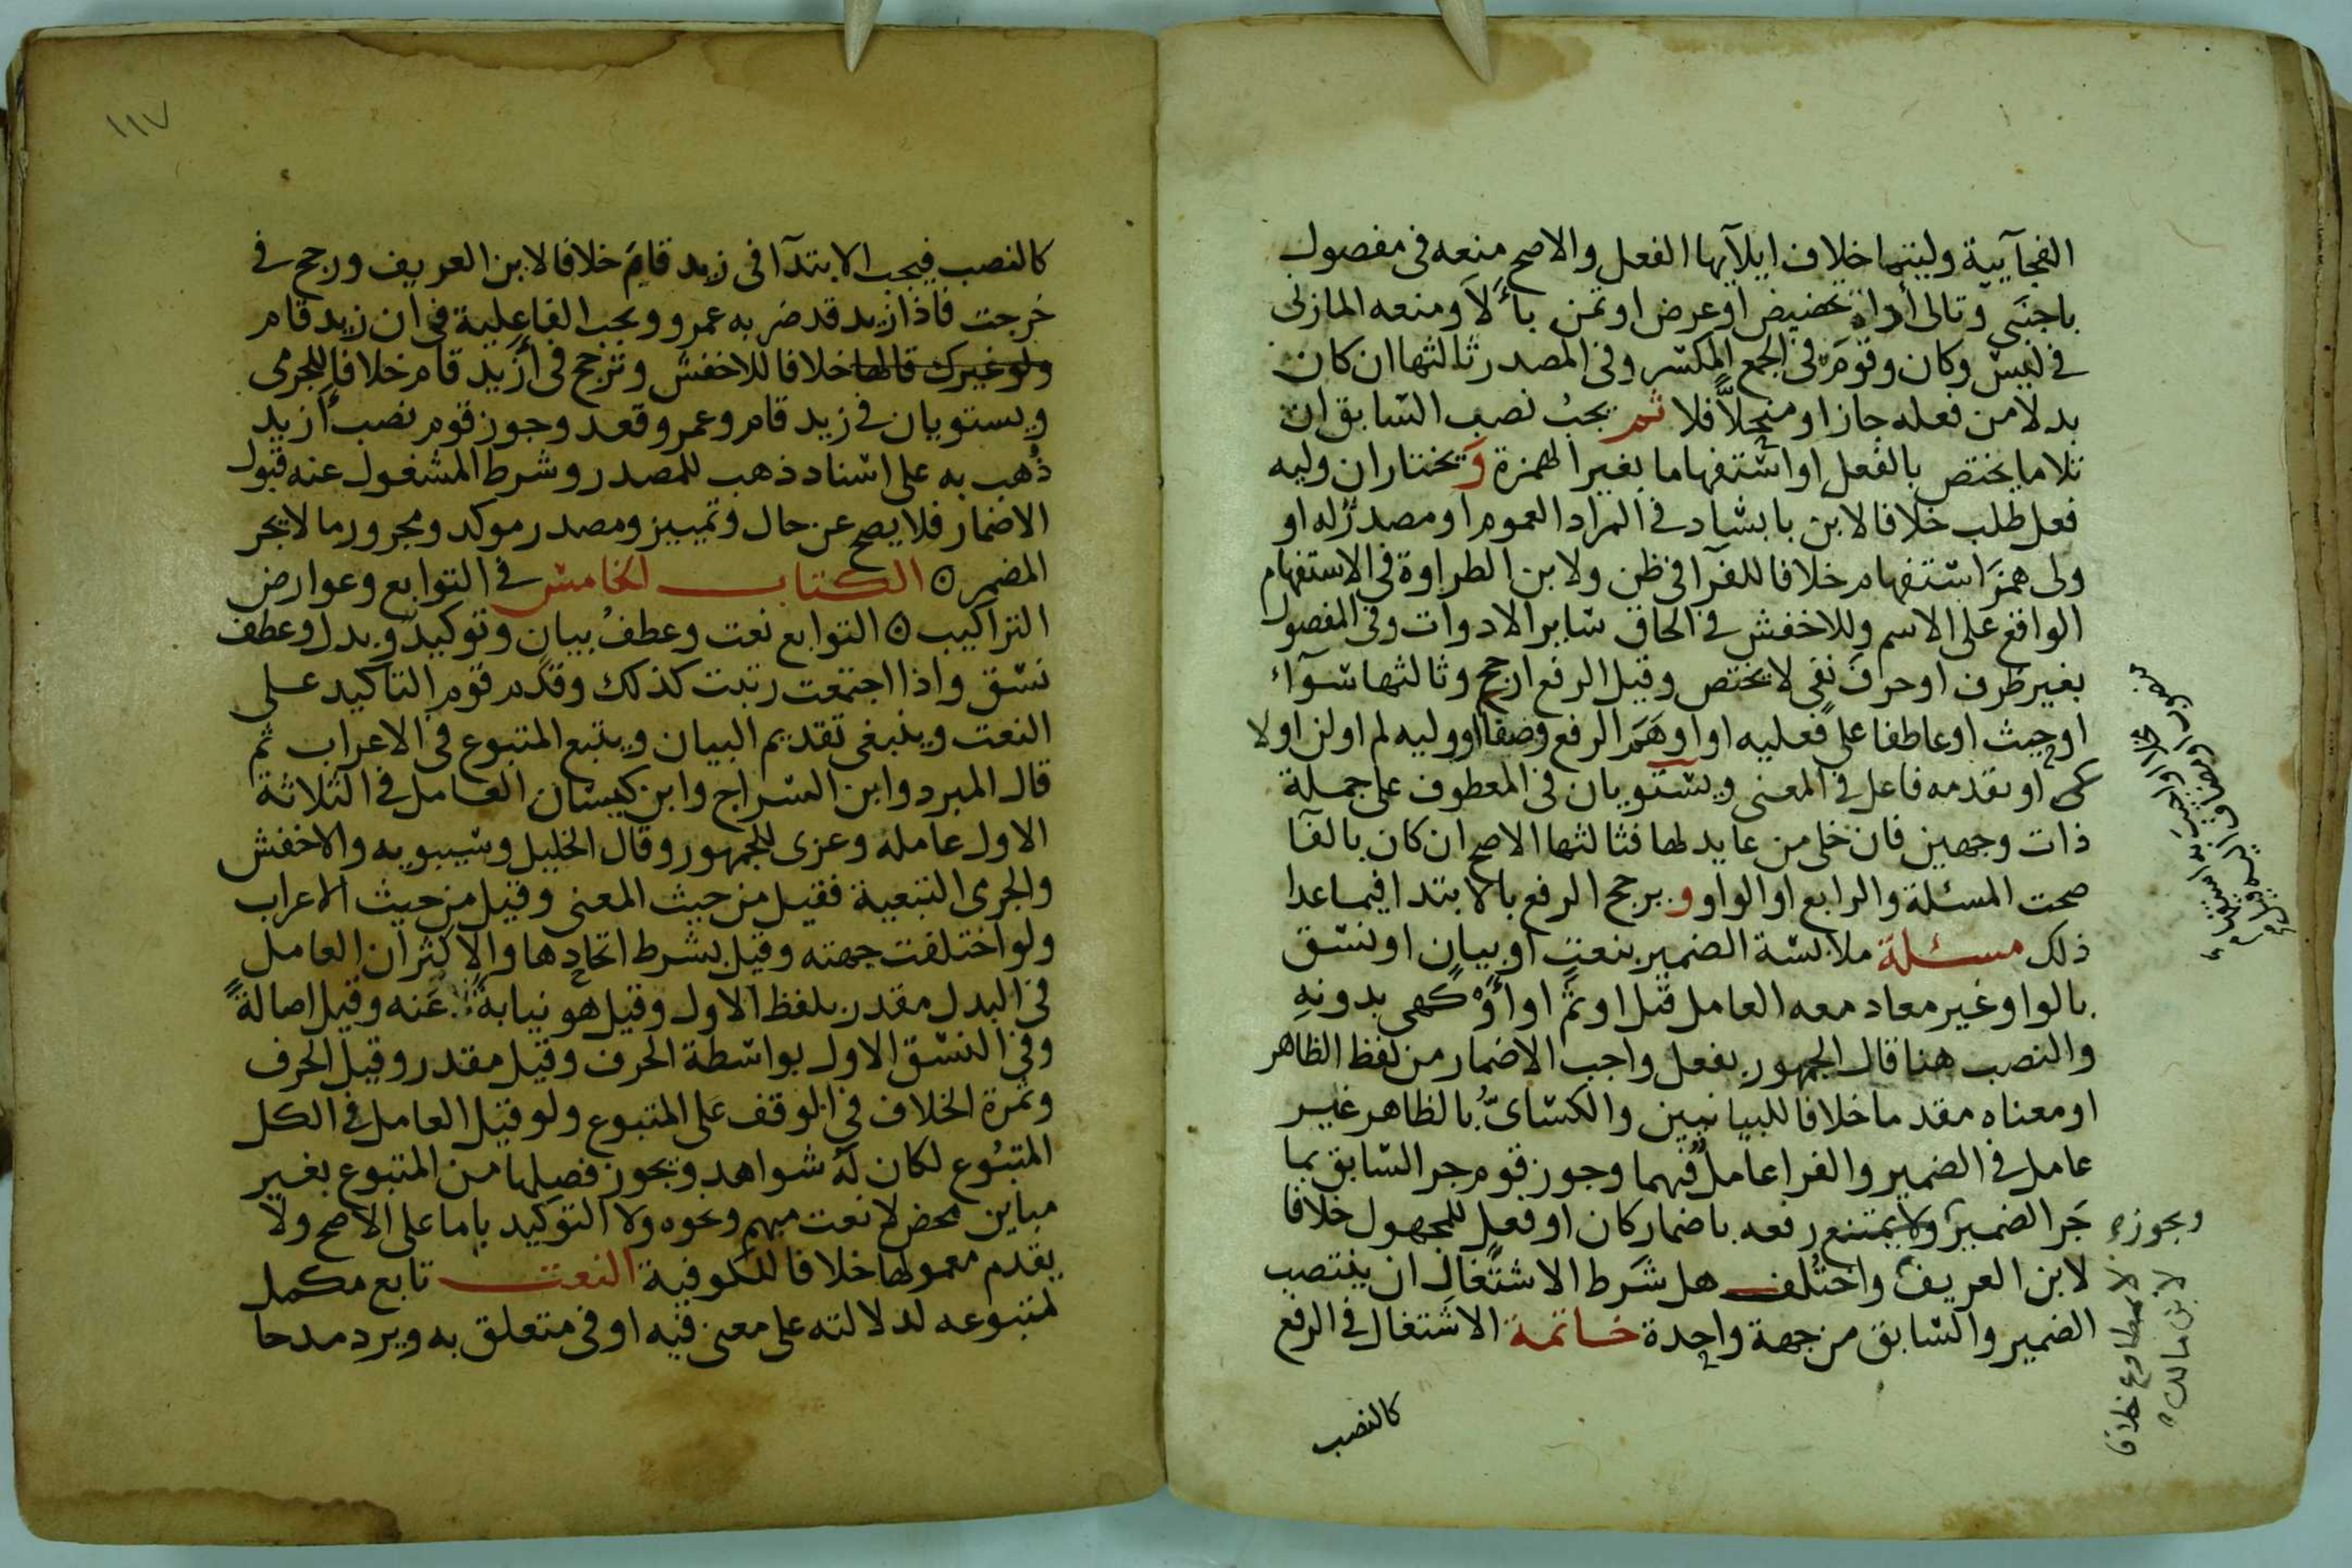 الفجآيية وليتما خلاف ايلآيها الفعل والاصح منعه فى مفصول
باجنبي وتالى أداة تحضيض او عرض او تمن بألا ومنعه المازنى
في ليس وكان وقوم في الجمع المكسر وفى المصدر ثالثها ان كان
بدلا من فعله جاز او منحلا فلا ثم يجب نصب السابق ان
تلا ما يختص بالفعل او استفهاما بغير الهمزة ويختار ان وليه
فعل طلب خلافا لابن بابشاد في المراد العموم او مصدر له او
ولى همز استفهام خلافا للفرآ فى ظن ولابن الطراوة فى الاستفهام
الواقع على الاسم وللاخفش في الحاق ساير الادوات وفى المفصول
بغير ظرف او حرف نفى لا يختص وقيل الرفع ارجح وثالثها سوآء
او حيث او عاطفا على فعليه او اوهم الرفع وصفا او وليه لم او لن او لا
او تقدمه فاعل في المعنى ويستويان فى المعطوف على جملة
ذات وجهين فان خلى من عايد لها فثالثها الاصح ان كان بالفآ
صحت المسئلة والرابع او الواو ويرجح الرفع بالابتدا فيما عدا
ذلك مسئلة ملابسة الضمير بنعت او بيان او نسق
بالواو غير معاد معه العامل قيل او ثم او أو كهى بدونه
والنصب هنا قال الجمهور بفعل واجب الاضمار من لفظ الظاهر
او معناه مقدما خلافا للبيانيين والكسائى بالظاهر غير
عامل في الضمير والفرا عامل فيهما وجوز قوم جر السابق بما
جر الضمير ولا يمتنع رفعه باضمار كان او فعل للمجهول خلافا
لابن العريف واختلف هل شرط الاشتغال ان ينتصب
الضمير والسابق من جهة واحدة خاتمة الاشتغال في الرفع
كالنصب
ويجوز
لا بمطاوع خلافا
لابن مالك
١١٧
كالنصب فيجب الابتدآ فى زيد قام خلافا لابن العريف ورجح في
خرجت فاذا زيد قد ضربه عمرو ويجب الفاعلية في ان زيد قام
ولو غيرك قالها خلافا للاخفش وترجح فى أزيد قام خلافا للجرمى
ويستويان في زيد قام وعمرو قعد وجوز قوم نصب أزيد
ذهب به على اسناد ذهب للمصدر وشرط المشغول عنه قبول
الاضمار فلا يصح عن حال وتمييز ومصدر موكد ومجرور ما لا يجر
المضمر الكتاب الخامس في التوابع وعوارض
التراكيب التوابع نعت وعطف بيان وتوكيد وبدل وعطف
نسق واذا اجتمعت رتبت كذلك وقدم قوم التاكيد على
النعت وينبغى تقديم البيان ويتبع المتبوع في الاعراب ثم
قال المبرد وابن السراج وابن كيسان العامل في الثلاثة
الاول عامله وعزى للجمهور وقال الخليل وسيبويه والاخفش
والجرمى التبعية فقيل من حيث المعنى وقيل من حيث الاعراب
ولو اختلفت جهته وقيل بشرط اتحادها والاكثر ان العامل
في البدل مقدر بلفظ الاول وقيل هو نيابة عنه وقيل اصالة
وفي النسق الاول بواسطة الحرف وقيل مقدر وقيل الحرف
وثمرة الخلاف في الوقف على المتبوع ولو قيل العامل في الكل
المتبوع لكان له شواهد ويجوز فصلها من المتبوع بغير
مباين محض لا نعت مبهم ونحوه ولا التوكيد باما على الاصح ولا
يقدم معمولها خلافا للكوفية النعت تابع مكمل
لمتبوعه لدلالته على معنى فيه او في متعلق به ويرد مدحا